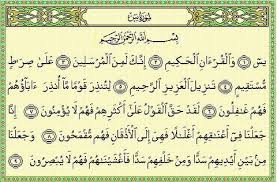 سُورَةُ يسٓ
بِسْمِ ٱللَّهِ ٱلرَّحْمَٰنِ ٱلرَّحِيمِ
يسٓ ١ وَٱلْقُرْءَانِ ٱلْحَكِيمِ ٢ إِنَّكَ لَمِنَ ٱلْمُرْسَلِينَ ٣ عَلَىٰ صِرَٰطٍ
مُّسْتَقِيمٍ ٤ تَنزِيلَ ٱلْعَزِيزِ ٱلرَّحِيمِ ٥ لِتُنذِرَ قَوْمًا مَّآ أُنذِرَ ءَابَآؤُهُمْ
فَهُمْ غَٰفِلُونَ ٦ لَقَدْ حَقَّ ٱلْقَوْلُ عَلَىٰٓ أَكْثَرِهِمْ فَهُمْ لَا يُؤْمِنُونَ ٧ إِنَّا
جَعَلْنَا فِىٓ أَعْنَٰقِهِمْ أَغْلَٰلًا فَهِىَ إِلَى ٱلْأَذْقَانِ فَهُم مُّقْمَحُونَ ٨ وَجَعَلْنَا
مِنۢ بَيْنِ أَيْدِيهِمْ سَدًّا وَمِنْ خَلْفِهِمْ سَدًّا فَأَغْشَيْنَٰهُمْ فَهُمْ لَا يُبْصِرُونَ ٩